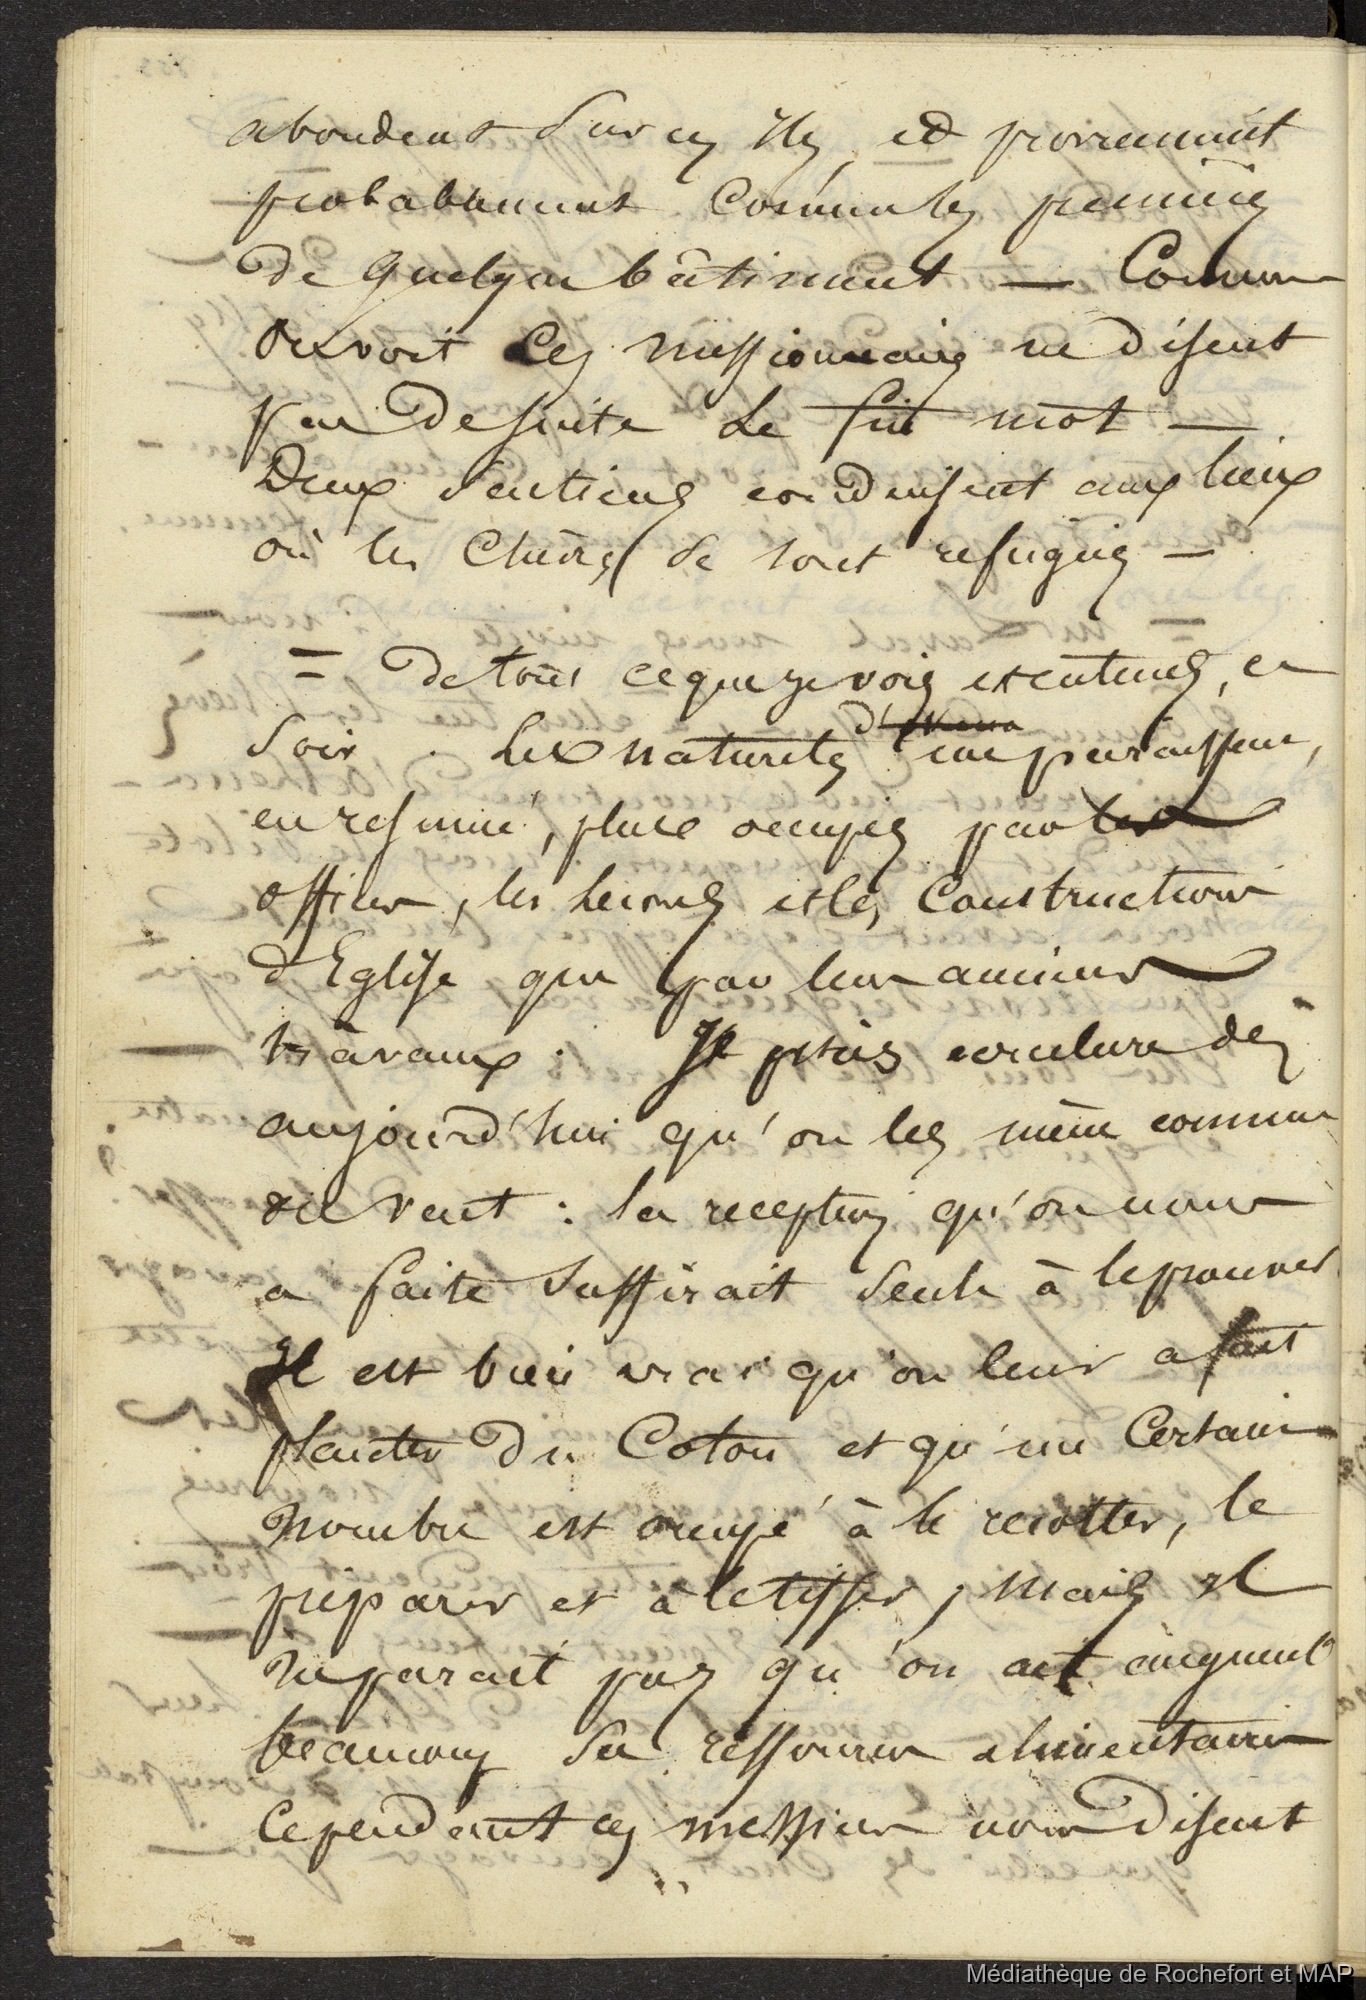 abondent sur ces Iles, et proviennent
probablement comme les premiers
de quelque bâtiment — Comme
on voit les missionnaires ne disent
pas de suite Le fin mot —
Deux sentiers conduisent aux lieux
où les chèvres se sont refugiés —
= De tout ce que je vois et entends, ce
soir. Les naturels d'ici me paraissent,
en resumé, plus occupés par les
offices, les leçons et les constructions
d'Eglise que par leurs anciens
travaux. Je puis conclure dès
aujourd'hui qu'on les mène comme
on veut : la reception qu'on nous
a faite suffirait seule à le prouver
Il est bien vrai qu'on leur a fait
planter du Coton et qu'un certain
nombre est occupé à le recolter, le
préparer et à le tisser, mais il
ne parait pas qu'on ait augmenté
beaucoup les ressources alimentaires
Cependant ces messieurs nous disent
Médiathèque de Rochefort et MAP